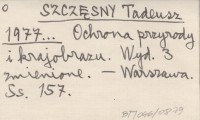 SZCZĘSNY Tadeusz
1977... Ochrona przyrody
i krajobrazu. Wyd. 3
zmienione. — Warszawa.
Ss. 157.